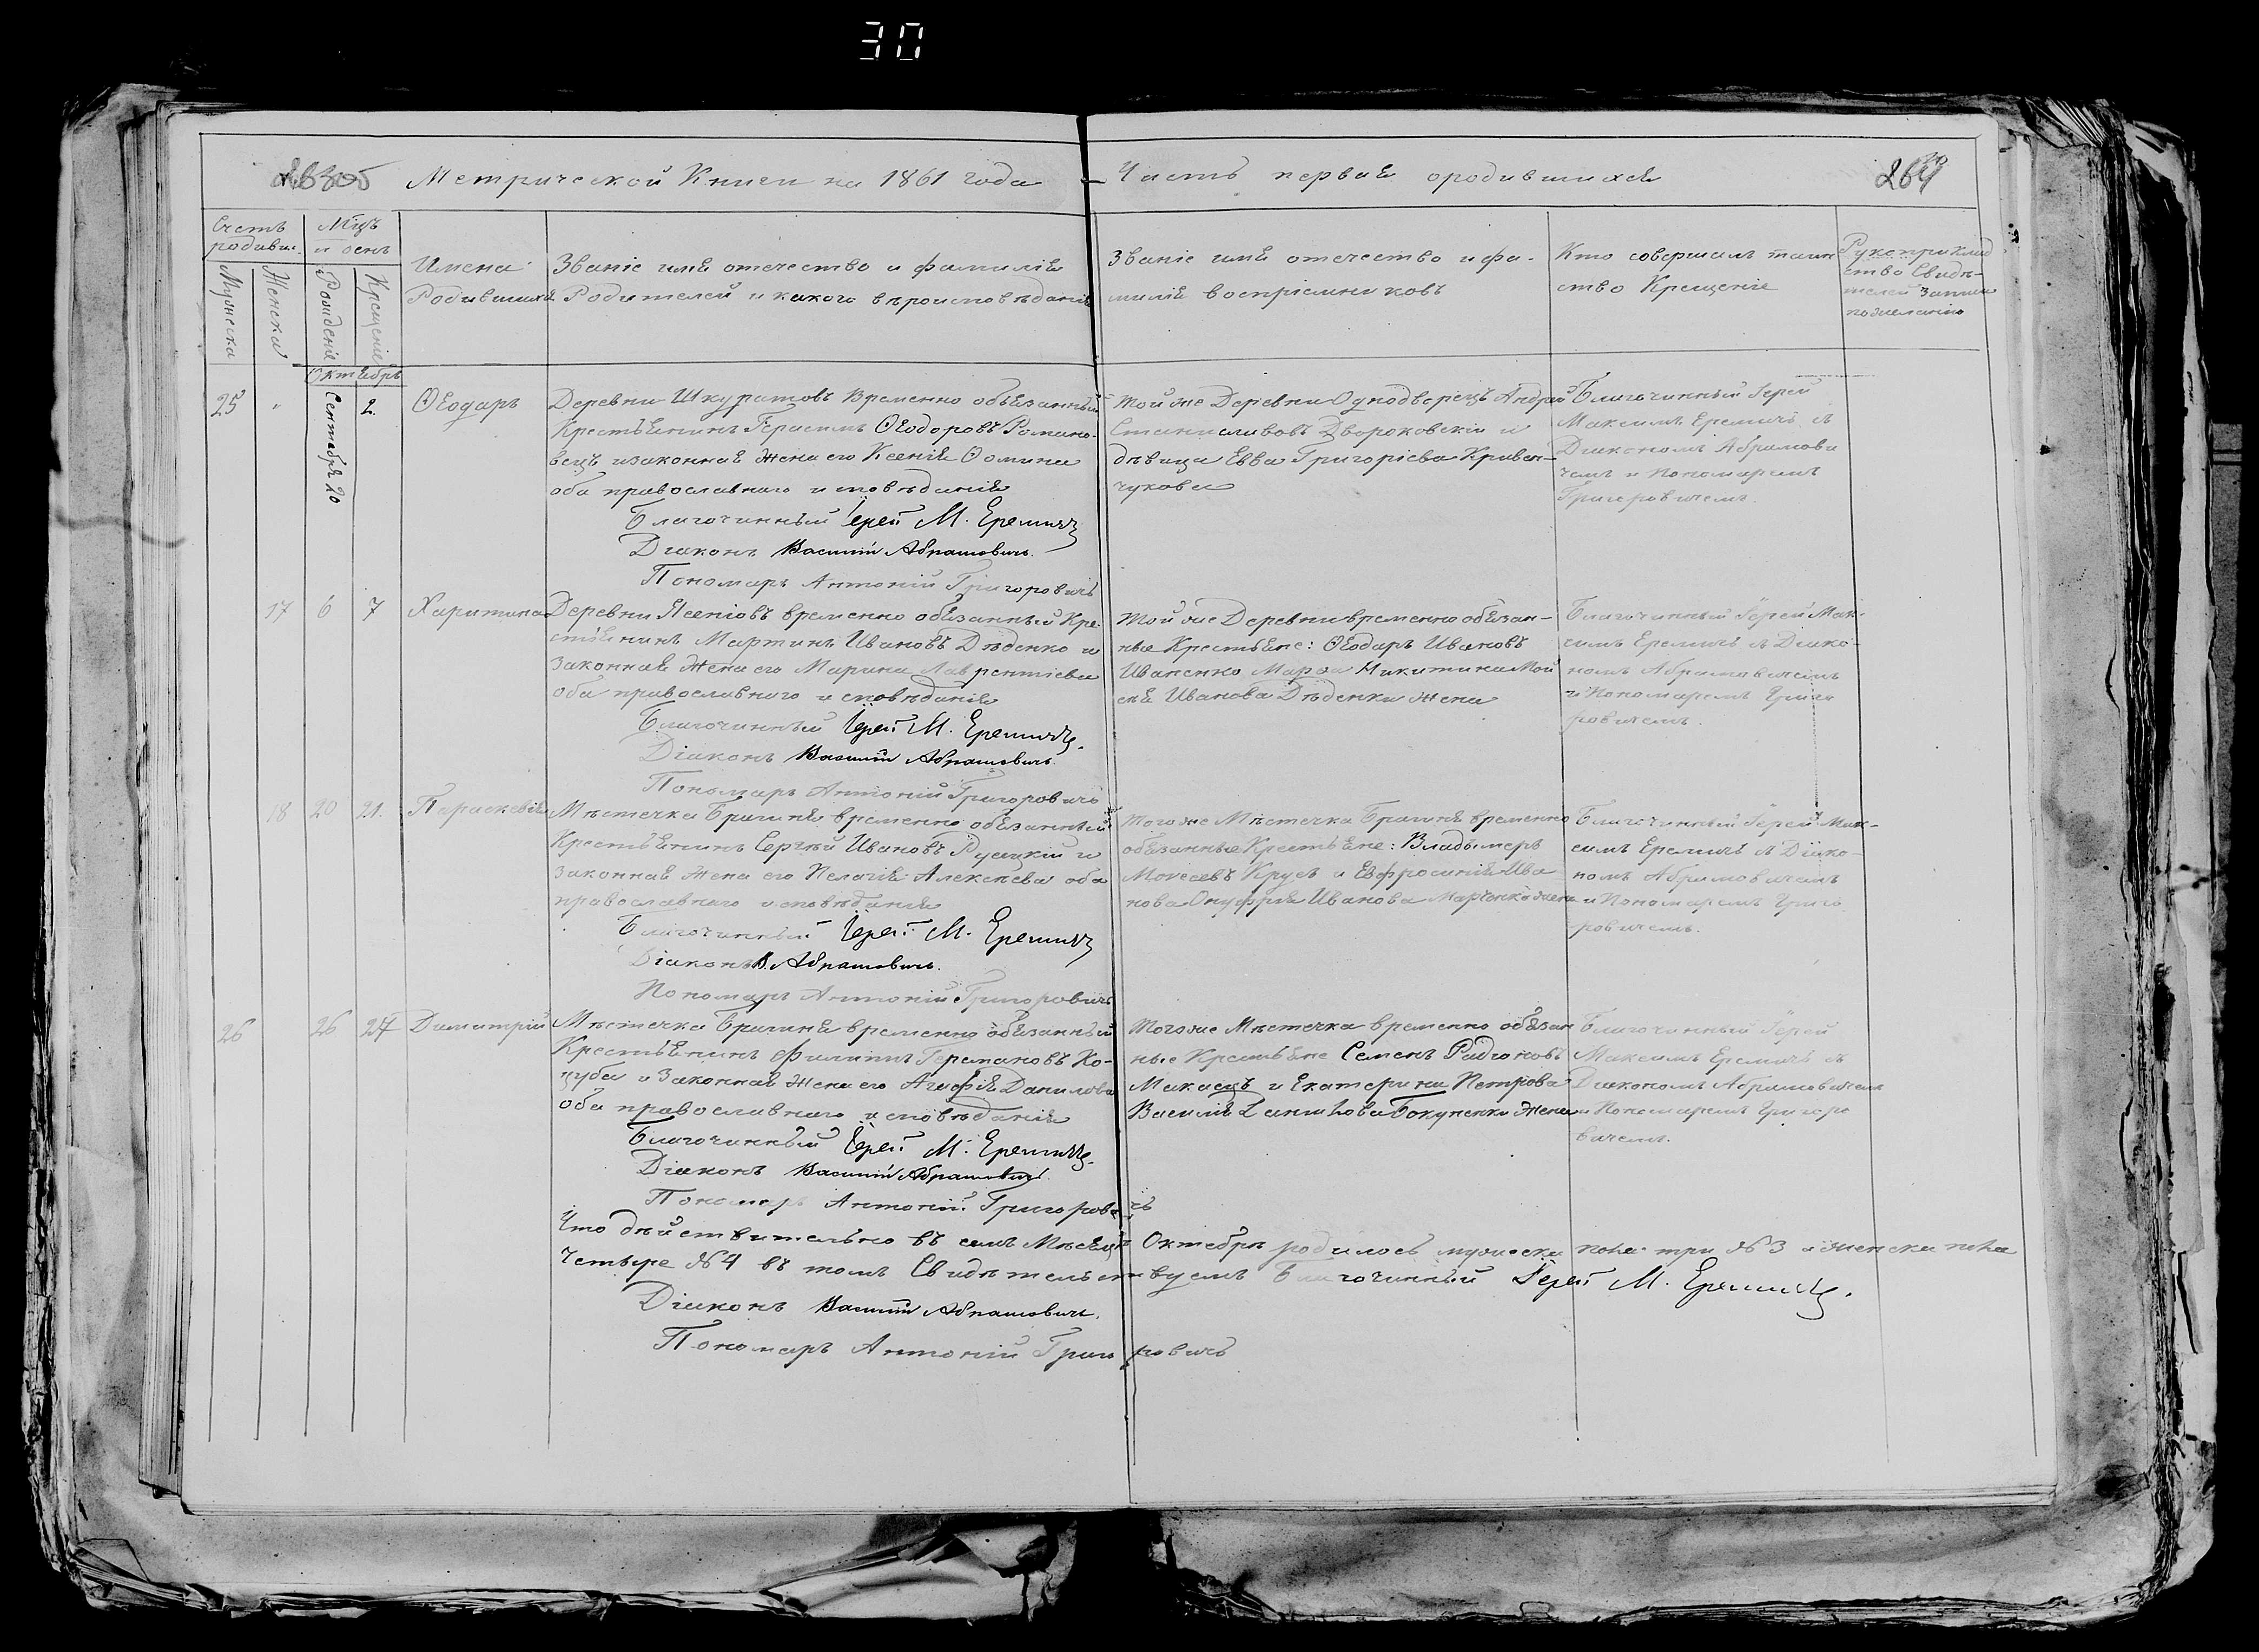 30
Метрической Книги на 1861 года
Часть первая о родившихся
269
Счетъ родивш.
Мужеска
Женска
Мцъ и день
Рожденіе
Крещеніе
Имена Родившихся
Званіе имя отечество и фамилія
Родителей и какого вѣроисповѣданія
Званіе имя отечество и фа-
милія воспріемниковъ
Кто совершалъ таин
ство Крещеніе
Рукоприклад
ство Свидѣ-
телей записи
по желанію
Октябрь
25
Сентября 20
2.
Ѳеодаръ
Деревни Шкуратовъ Временно обязанный
Крестьянинъ Герасимъ Ѳеодоровъ Романо-
вецъ и законная жена его Ксенія Ѳомина
оба православнаго исповѣданія
Благочинный Іерей М. Еремичъ
Діаконъ Василій Абрамовичъ.
Пономарь Антоній Григоровичъ
той же Деревни Однодворецъ Андрей
Станиславовъ Двораковскій и
дѣвица Евва Григоріева Кривен-
чукова
Благочинный Іерей
Максимъ Еремичъ съ
Діакономъ Абрамови
чемъ и Пономаремъ
Григоровичемъ.
17
6
7
Харитина
Деревни Ясеніовъ временно обязанный Кре-
стьянинъ Мартинъ Ивановъ Дѣденко и
Законная жена его Марина Лаврентіева
оба православного исповѣданія
Благочинный Іерей М. Еремичъ.
Діаконъ Василій Абрамовичъ.
Пономарь Антоній Григоровичъ
той же Деревни временно обязан-
ные Крестьяне: Ѳеодаръ Ивановъ
Иваненко Марѳа Никитина Мои
сея Иванова Дѣденки жена
Благочинный Іерей Мак-
симъ Еремичъ съ Діако-
номъ Абрамовичемъ
и Пономаремъ Григо
ровичемъ.
18
20
21.
Параскевія
Мѣстечка Брагиня временно обязанный
Крестьянинъ Сергѣй Ивановъ Русецкій и
законная жена его Пелагія Алексѣева оба
православнаго исповѣданія
Благочинный Іерей М. Еремичъ
Діаконъ В. Абрамовичъ.
Пономарь Антоній Григоровичъ
того же Мѣстечка Брагиня временно
обязанные Крестьяне: Владымеръ
Моисеевъ Крусъ и Евфросинія Ива
нова Онуфрія Иванова Марченко жена
Благочинный Іерей Мак-
симъ Еремичъ съ Діако-
номъ Абрамовичемъ
и Пономаремъ Григо
ровичемъ.
26
26
27
Димитрій
Мѣстечка Брагиня временно обязанный
Крестьянинъ Филиппъ Германовъ Ко-
цуба и Законная жена его Агафія Данилова
оба православнаго исповѣданія
Благочинный Іерей М. Еремичъ.
Діаконъ Василій Абрамовичъ.
Пономарь Антоній Григоровичъ
того же Мѣстечка временно обязан
ные Крестьяне Семенъ Радіоновъ
Макаецъ и Екатерина Петрова
Василія Данилова Бокуненки жена
Благочинный Іерей
Максимъ Еремичъ съ
Діакономъ Абрамовичемъ
и Пономаремъ Григоро
вичемъ.
Что дѣйствительно въ семъ Мѣсяцѣ Октябрѣ родилось мужеска пола три № 3 а женска пола
Четыре № 4 въ томъ Свидѣтельствуемъ Благочинный Іерей М. Еремичъ.
Діаконъ Василій Абрамовичъ.
Пономарь Антоній Григоровичъ